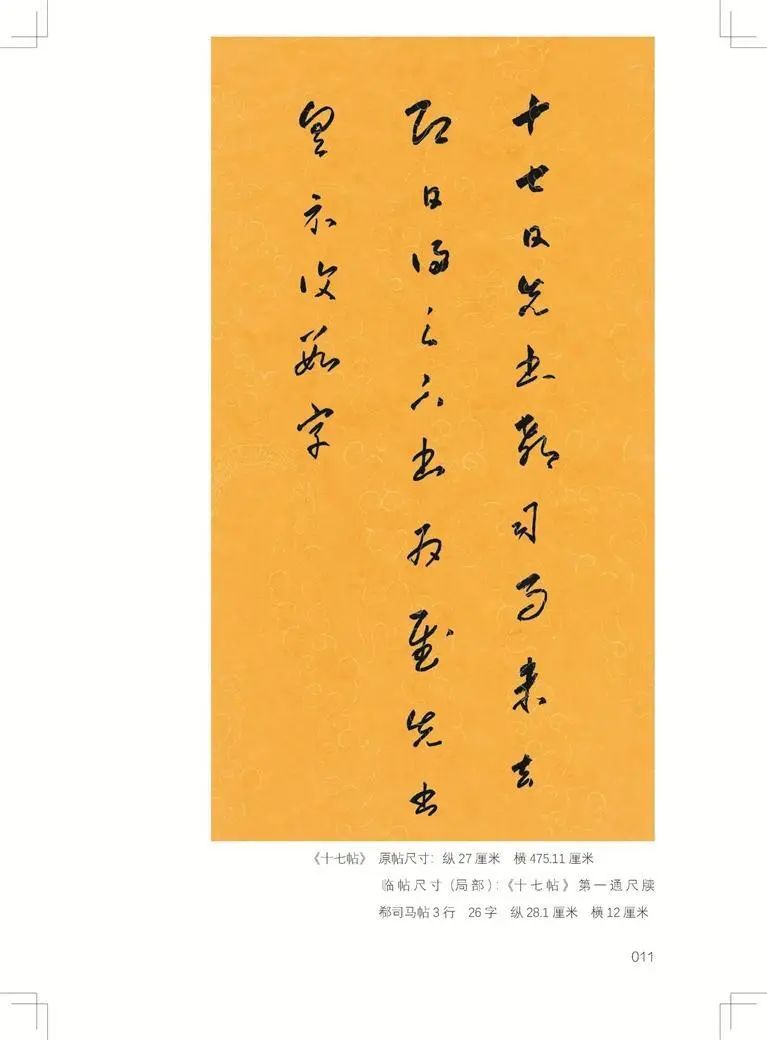 十七日先書郗司馬未去
即日得足下書為慰先書
以具示復數字
《十七帖》 原帖尺寸：纵 27 厘米 横 475.11 厘米
临帖尺寸（局部）：《十七帖》第一通尺牍
郗司马帖 3 行 26 字 纵 28.1 厘米 横 12 厘米
011